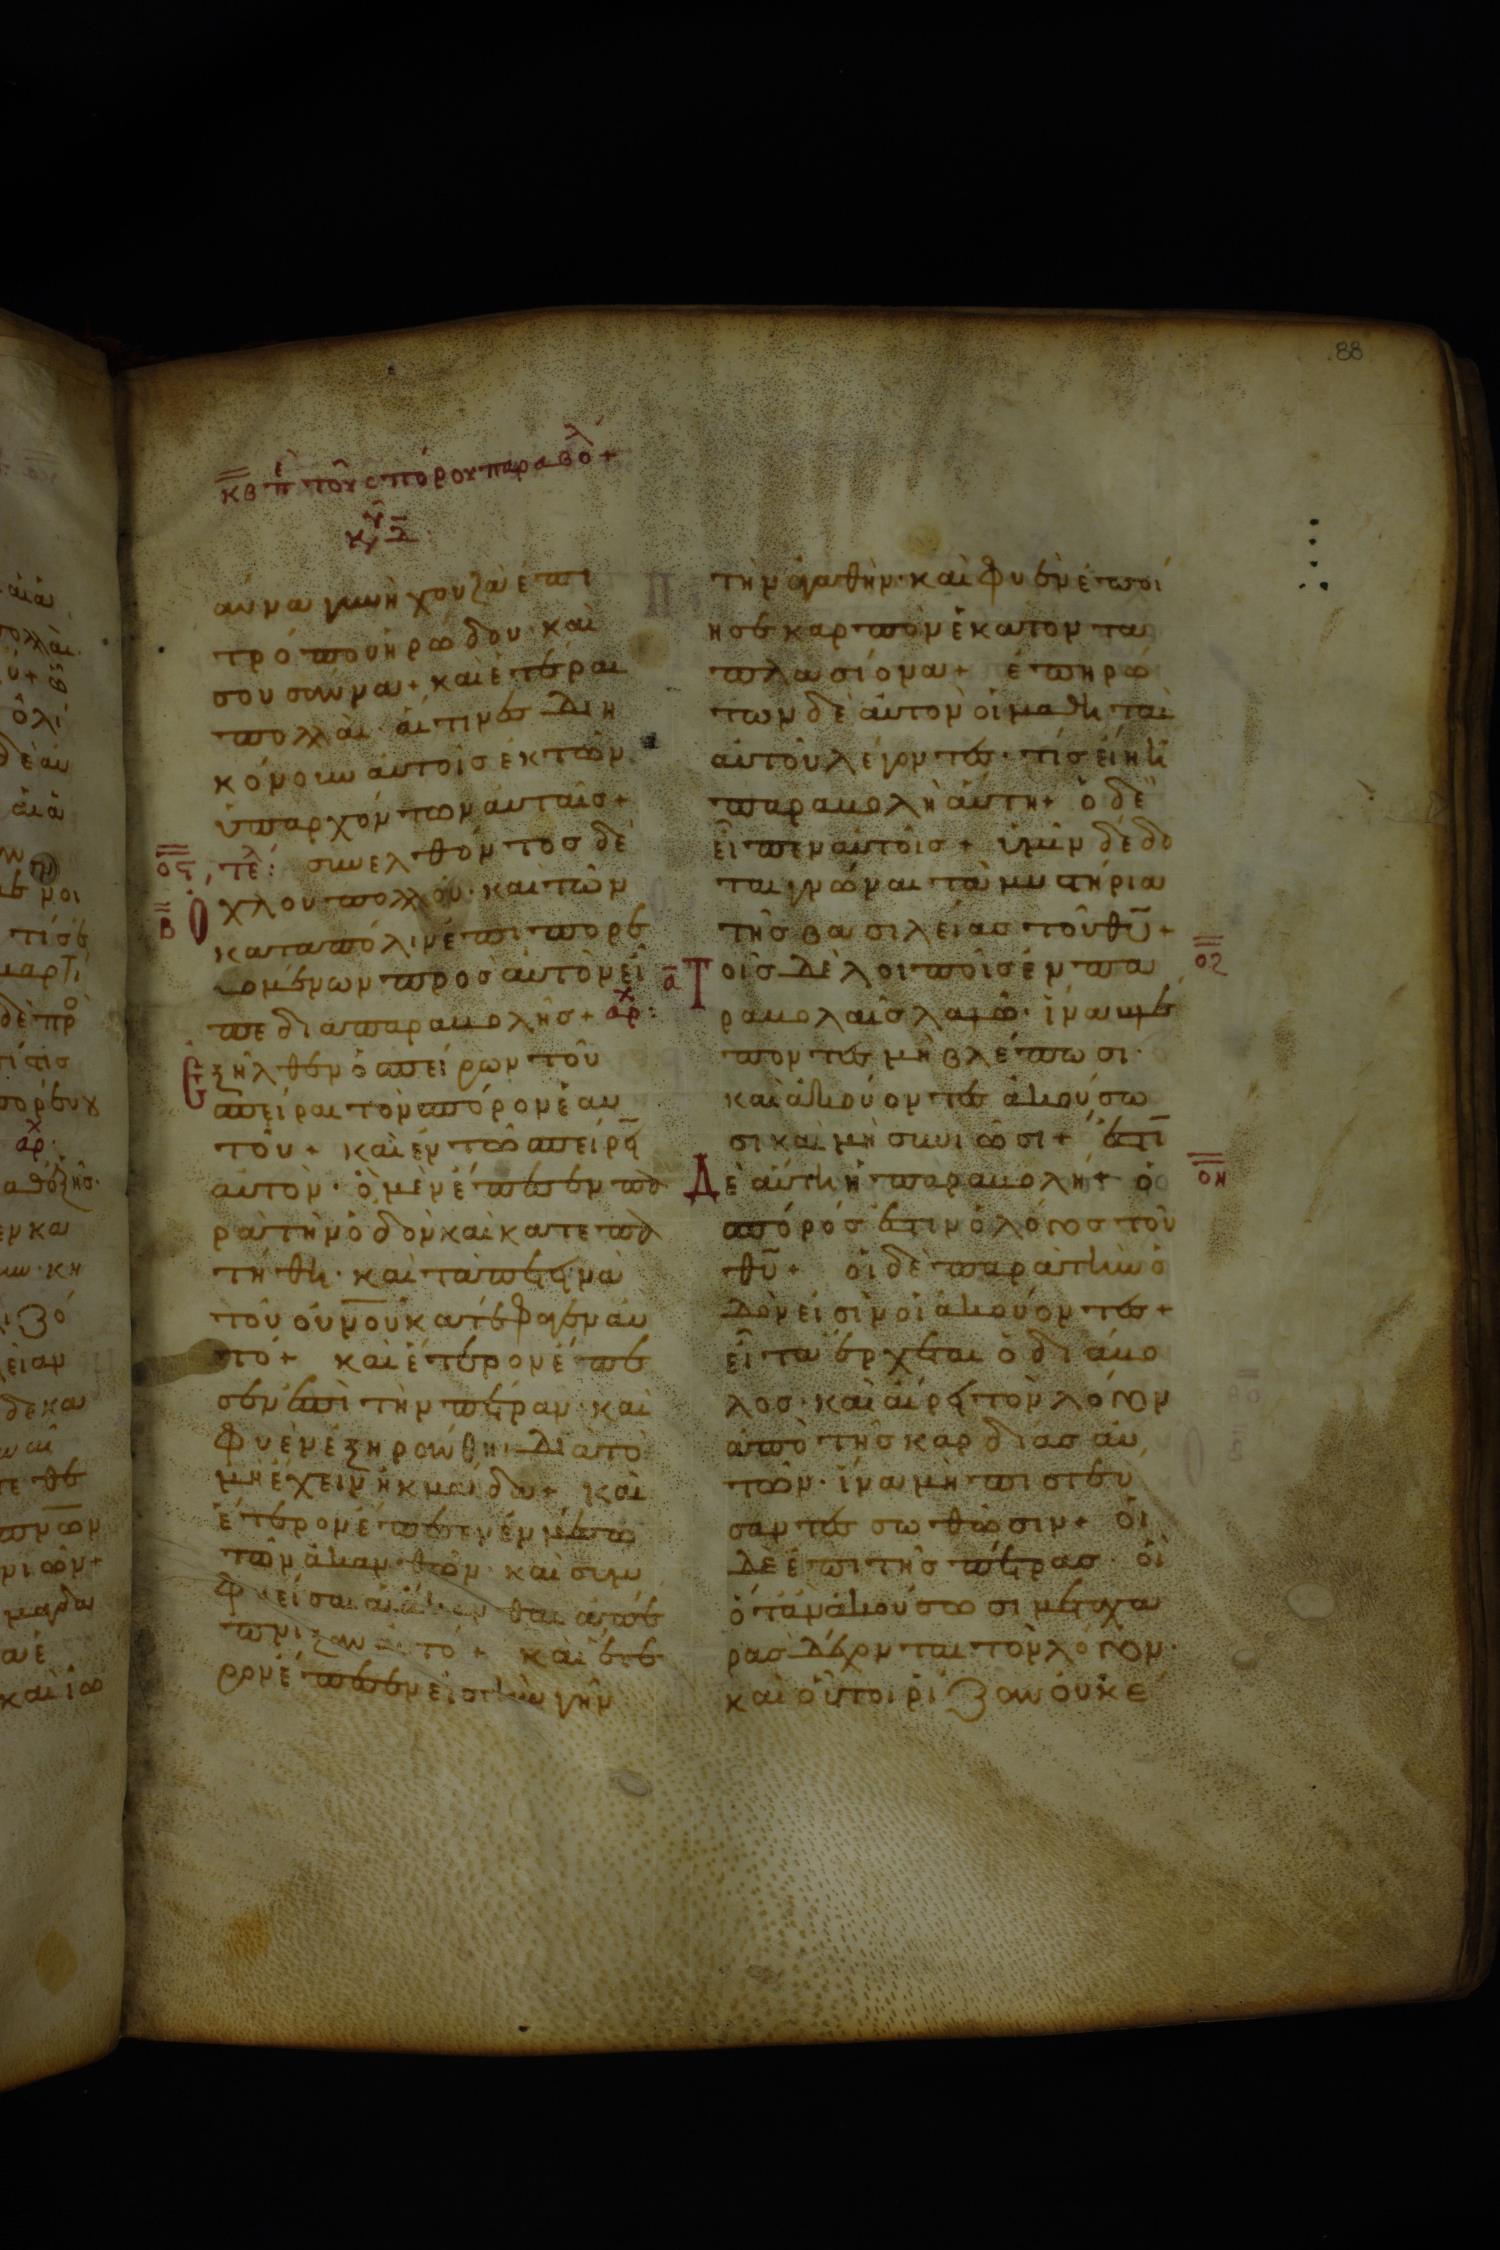 κβ πε τοῦ σπόρου παραβολ +
κυ δ
αννα γυνὴ χουζᾶ ἐπι
τρόπου ἡρώδου· καὶ
σουσάννα + καὶ ἕτεραι
πολλαὶ· αἵτινες διη
κόνουν αὐτοῖς ἐκ τῶν
ὑπαρχόντων αὐταῖς +
ος τελ: συνελθόντος δὲ
β Ὀχλου πολλοῦ· καὶ τῶν
κατα πόλιν ἐπιπορευ
ομένων πρὸς αὐτὸν εἶ
πε δια παραβολῆς + αρχ:
Ἐξῆλθεν ὁ σπείρων τοῦ
σπεῖραι τὸν σπόρον ἑαυ
τοῦ + καὶ ἐν τῶ σπείρειν
αὐτὸν· ὃ μὲν ἔπεσεν πα
ρὰ τὴν ὁδὸν καὶ κατεπα
τήθη· καὶ τὰ πετεινὰ
τοῦ οὐνοῦ κατέφαγεν αὐ
τό + καὶ ἕτερον ἔπε
σεν ἐπὶ τὴν πέτραν· καὶ
φυὲν ἐξηράνθη· διὰ τὸ
μὴ ἔχειν ἰκμάδα + καὶ
ἕτερον ἔπεσεν ἐν μέσω
τῶν ἀκανθῶν· καὶ συμ
φυεῖσαι αἱ ἄκανθαι ἀπέ
πνιξαν αὐτό + καὶ ἕτε
ρον ἔπεσεν εἰς τὴν γῆν
τὴν ἀγαθήν· καὶ φυὲν ἐποί
ησε καρπὸν ἑκατοντα
πλασίονα + ἐπηρώ
των δὲ αὐτὸν οἱ μαθηταὶ
αὐτοῦ λέγοντες· τίς εἴη ἡ
παραβολὴ αὕτη + ὁ δὲ
εἶπεν αὐτοῖς + ὑμῖν δέδο
ται γνῶναι τὰ μυστήρια
τῆς βασιλείας τοῦ θυ +
α Τοῖς δὲ λοιποῖς ἐν πα οζ
ραβολαῖς λαλῶ· ἵνα βλέ
ποντες μὴ βλέπωσι·
καὶ ἀκούοντες ἀκούσω
σι καὶ μὴ συνιῶσι + ἔστι
Δὲ αὕτη ἡ παραβολή + ὁ οη
σπόρος ἐστιν ὁ λόγος τοῦ
θυ + οἱ δὲ παρὰ τὴν ὁ
δὸν εἰσὶν οἱ ἀκούοντες +
εἶτα ἔρχεται ὁ διάβο
λος· καὶ αἴρει τὸν λόγον
ἀπὸ τῆς καρδίας αὐ
τῶν· ἵνα μὴ πιστεύ
σαντες σωθῶσιν + Οἱ
δὲ ἐπι τῆς πέτρας· οἳ
ὅταν ἀκούσωσι μετα χα
ρᾶς δέχονται τὸν λόγον·
καὶ οὗτοι ῥίζαν οὐκ ἔ
88